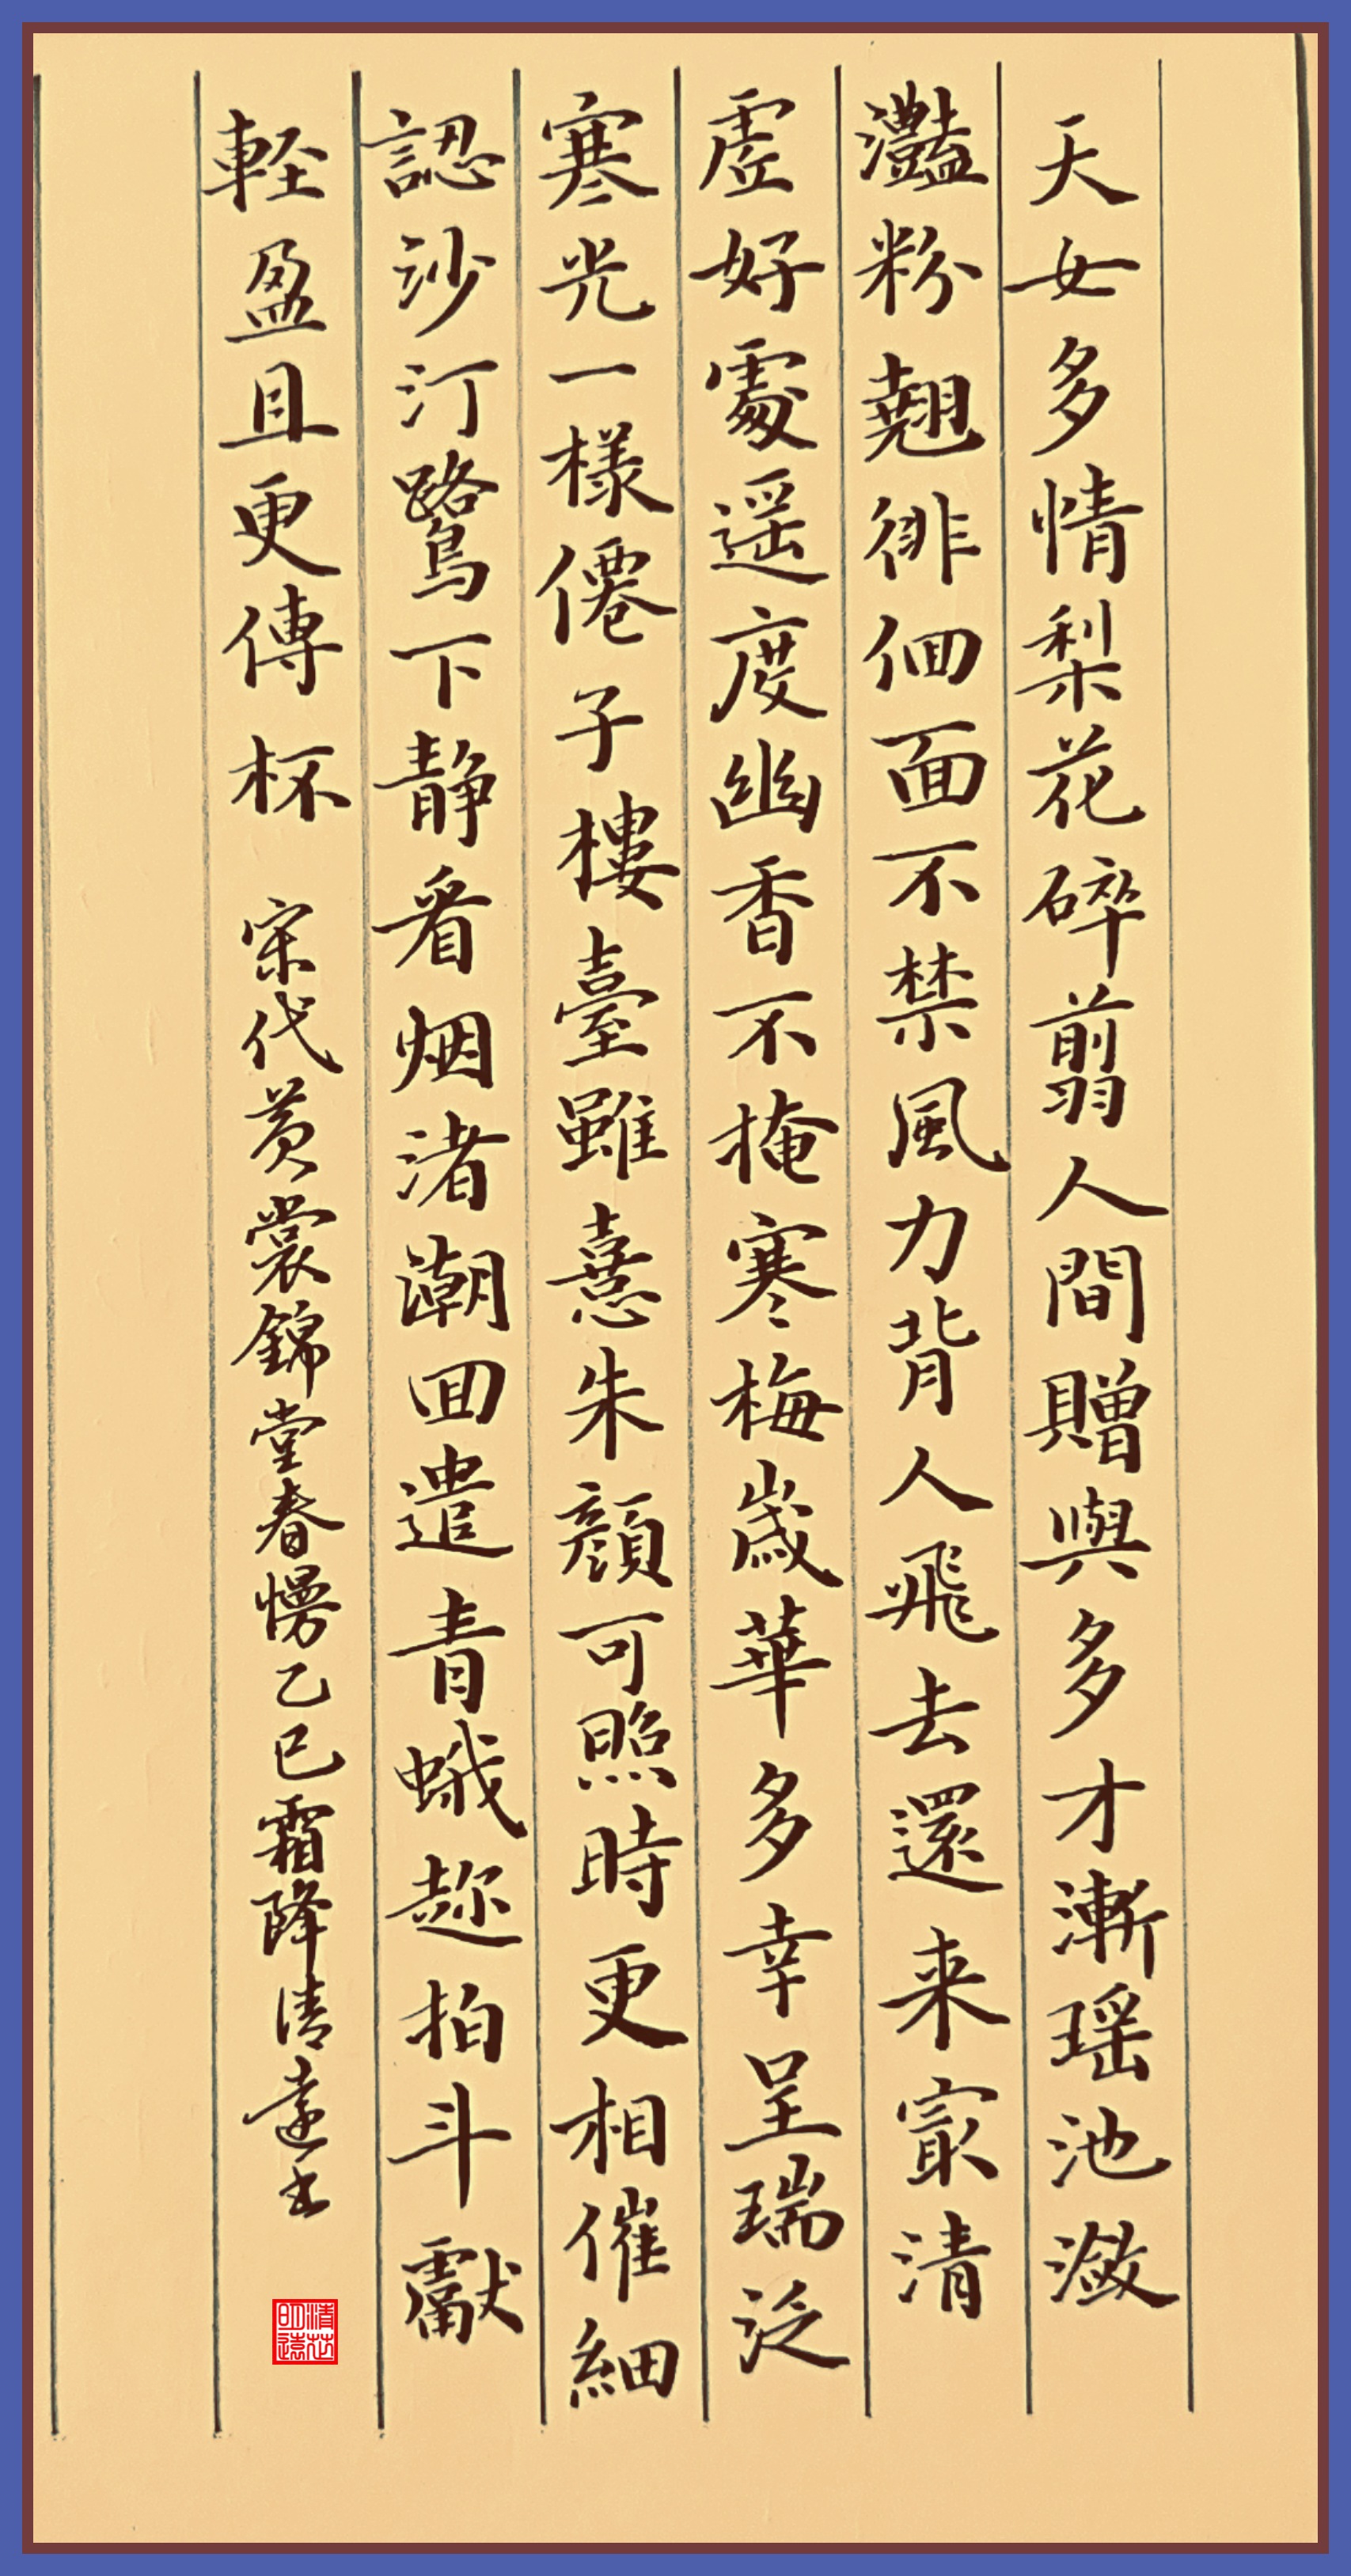 天女多情梨花碎翦人間贈與多才漸瑶池瀲
灩粉翘徘徊面不禁風力背人飛去還来寂清
虛好處遥度幽香不掩寒梅歲華多幸呈瑞泛
寒光一樣僊子樓臺雖憙朱顔可照時更相催細
認沙汀鷺下静看烟渚潮回遣青蛾趂拍斗獻
軽盈且更傳杯 宋代黄裳錦堂春慢乙巳霜降清遠書
清芷明遠